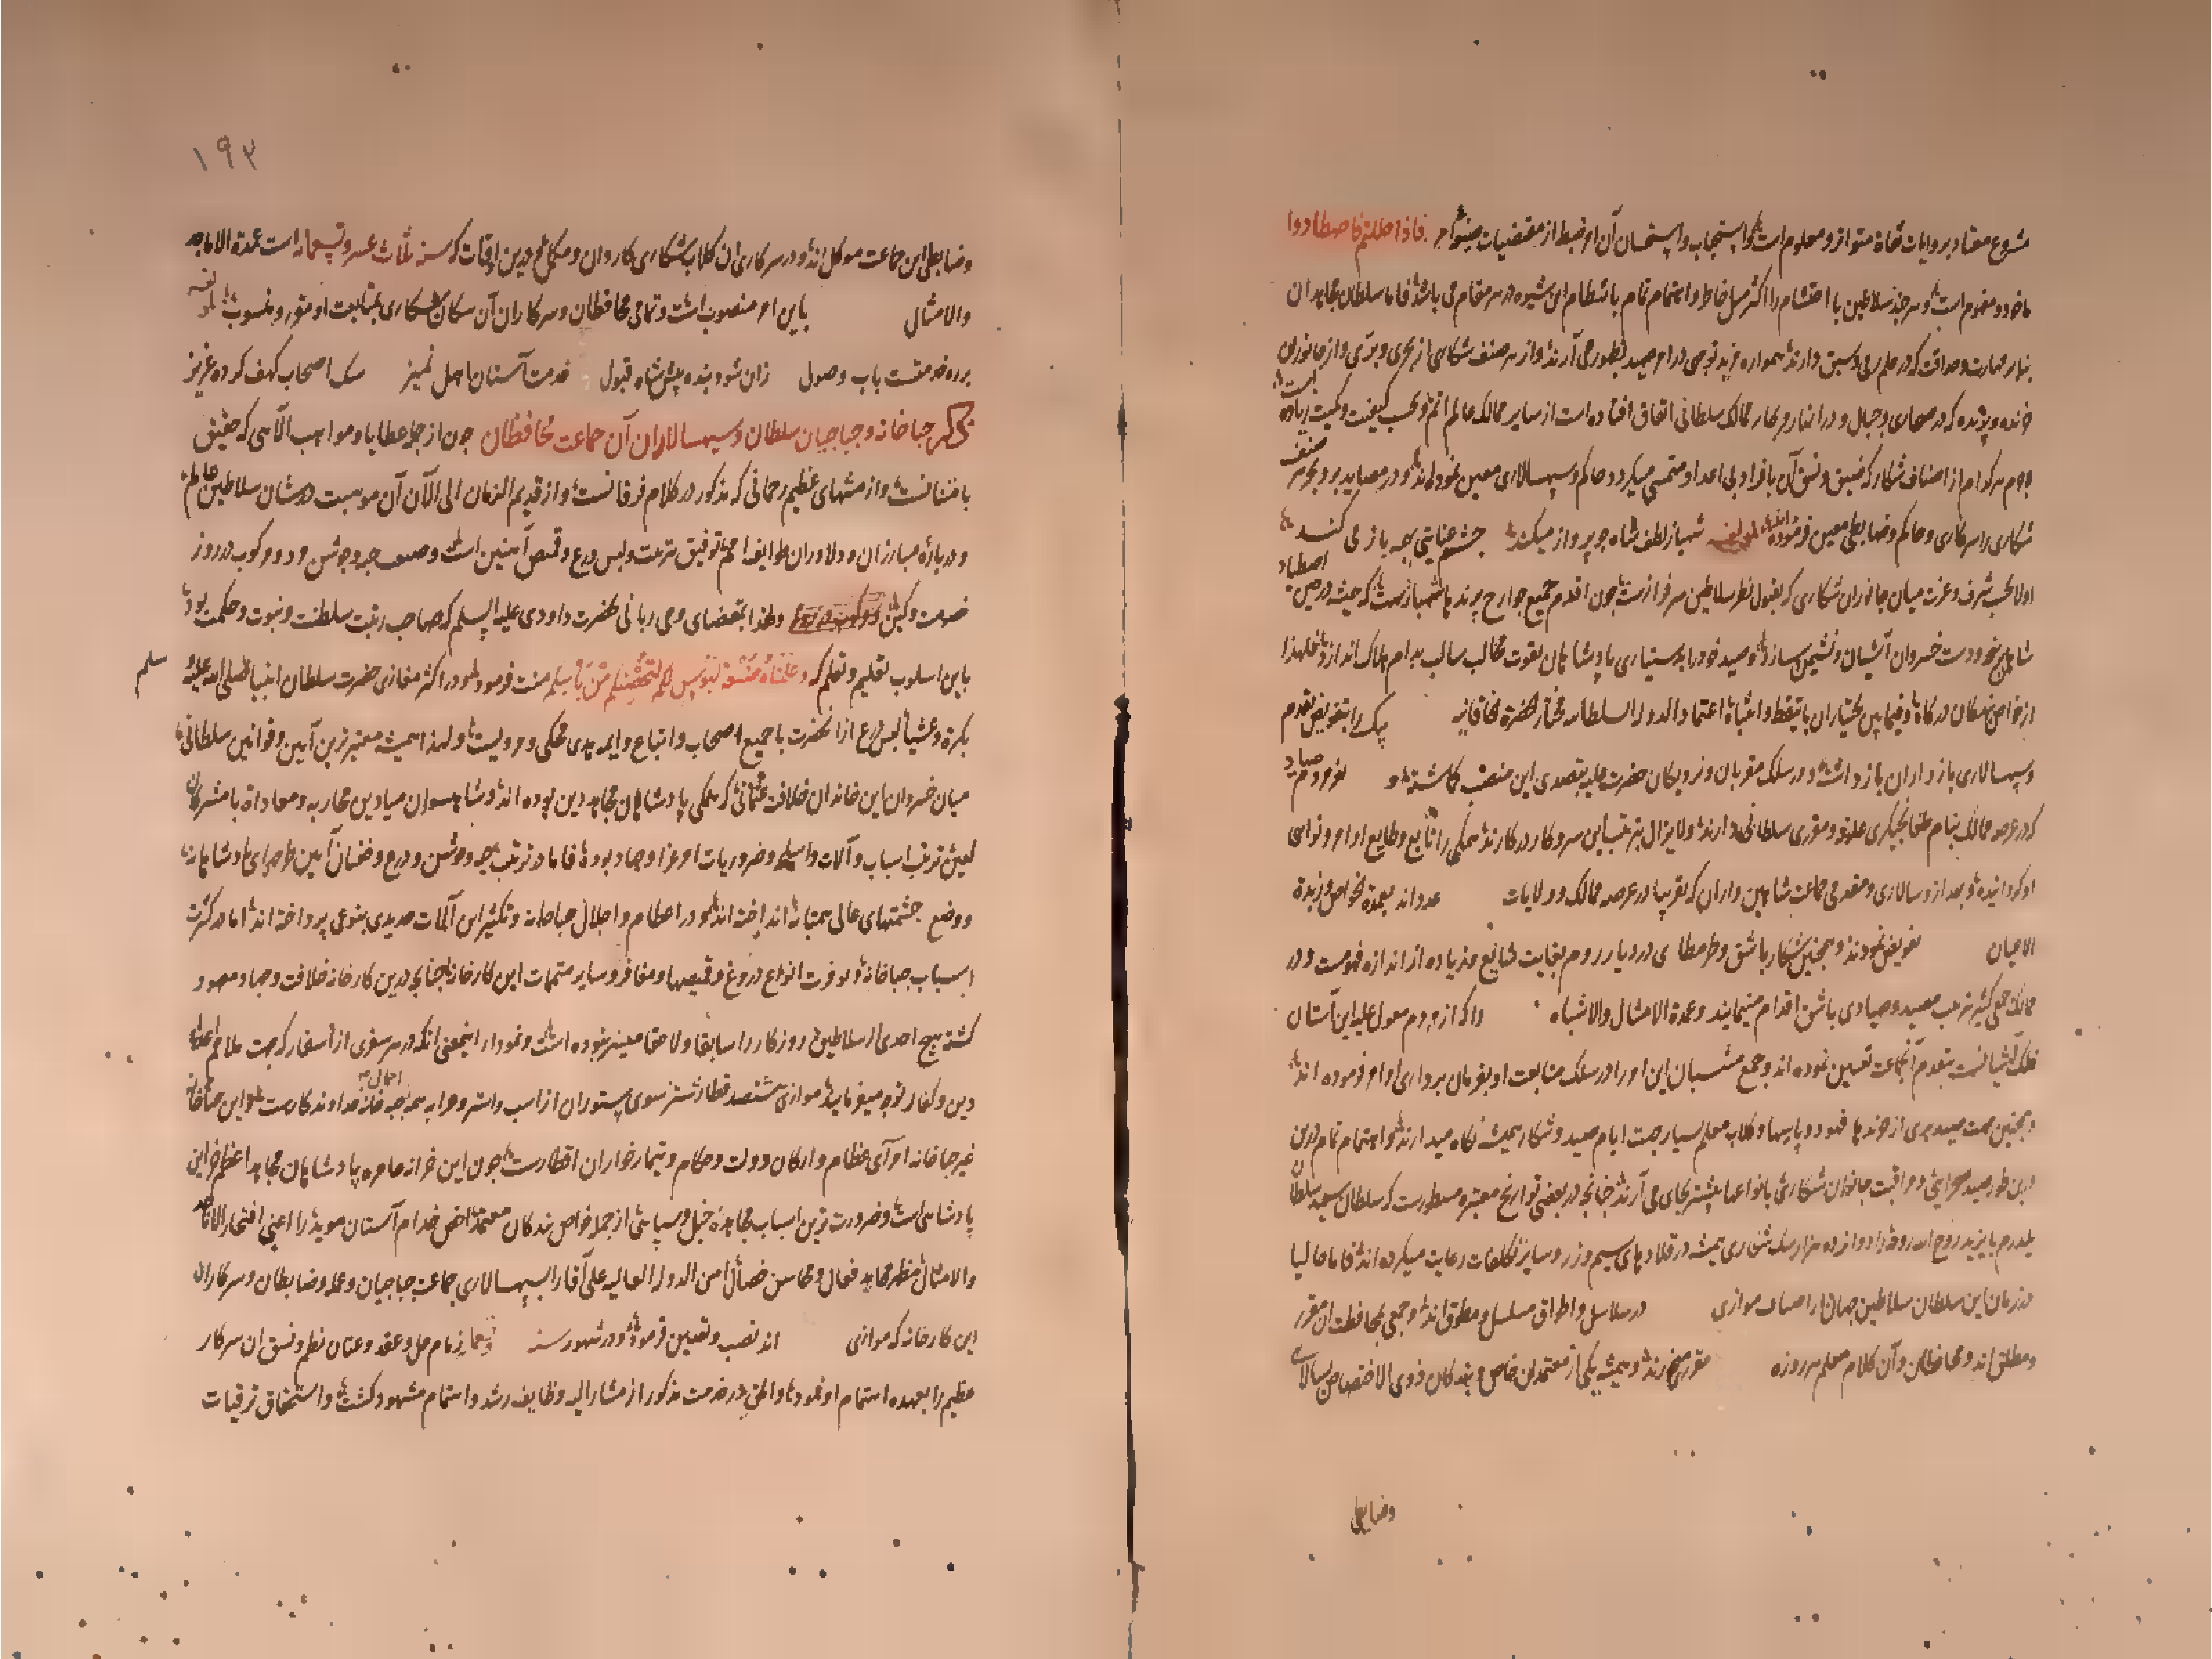 مشروع معتاد بروایات ثقاة متواتر و معلوم است و استحباب و استحسان آن امر ضبط از مقتضیات فاذا حللتم فاصطادوا
ماخوذ و مفهوم است و هر چند سلاطین با احتشام را اکثر میل خاطر و اهتمام تمام بانتظام این شیوه در هر مقام می باشد فاما سلطان مجاهدان
بنابر مهارت و حداقت که در علم دارند همواره مزید توجهی در امر صید بظهور می آرند و از هر صنف شکاری از بحری و بری و از جانوران
خزنده و پرنده که در صحاری و جبال و در انهار و بحار ممالک سلطانی اتفاق افتاده است از سایر ممالک عالم اتم و بحسب کیفیت و کمیت زیاده است
هر کدام از اصناف شکار که و نسق آن بافراد بی اعداد متمشی میگردد حاکم و سپهسالاری معین نموده اند و در مصاید بر و بحر هر صنف
شکاری را سرکاری و حاکم و ضابطی معین فرموده اند لمولفه شهباز لطف شاه چو پرواز میکند چشم عنایتی بهمه باز می کند
اولا بحسب شرف و عزت میان جانوران شکاری که بقبول نظر سلاطین سرفرازست چون اقدم جمیع جوارح پرنده شهبازست که همیشه در حین اصطیاد
دست خسروان آشیان و نشیمن سازد و صید خود را بدستیاری پادشاهان بقوت مخالب سالب بدام هلاک اندازد فلهذا
از خواص بندگان درگاه و فیمابین بختیاران با تیقظ و انتباه اعتماد الدولة السلطانیه مختار الحضرة الخاقانیه بیک را بتفویض تقدم
و سپهسالاری بازداران باز داشت و در سلک مقربان و نزدیکان حضرت علیه بتصدی این منصب گماشته
که در عرصه ممالک بنام طغانجیگری علوفه و مقرری سلطانی دارند و لایزال بترتیب این سر و کار در کارند همگی را تابع و طایع اوامر و نواهی
او گردانیده و بعد از و سالاری و مقدمی جماعت شاهین داران که تقریبا در عرصه ممالک و ولایات عدداند بعمدة الخواص و زبدة
الاعیان تفویض نمودند و همچنین شکار باشق و در دیار روم بغایت شایع و زیاده از اندازه فهومست و در
ممالک جمعی کثیر بترتیب صید و صیادی باشق اقدام مینمایند و عمدة الامثال والاشباه را که از مردم معول علیه این آستان
فلک آشیانست بتقدم آنجماعت تعیین نموده اند و جمع منتسبان این امر را در سلک متابعت او بفرمان برداری اوامر فرموده اند
و همچنین جهت صید بری از فهود و کلاب معلم بسیار جهت ایام صید و شکار همیشه نگاه میدارند و اهتمام تمام درین
درین طور صید صحرایی و مراقبت جانوران شکاری بانواعها بیشتر بجای می آرند چنانچه در بعضی تواریخ معتبره مسطورست که سلطان سعید سلطان
یلدرم بایزید روح الله روحه را دوازده هزار سک شکاری همیشه در قلاده های سیم و زر و سایر تکلفات رعایت میکرده اند فاما حالیا
در زمان این سلطان سلاطین جهان موازی در سلاسل و اطواق مسلسل و مطوق اند و جمعی بمحافظت آن مقرر
و مطلق اند و محافظان و آن کلاب معلم هر روزه مقرری میخورند و همیشه یکی از معتمدان خاص و بندکان ذوی الاختصاص بسالاری
وضابطی
۱۹۳
وضابطی این جماعت موکل اند و در سرکاری آن کلاب شکاری کاردان و مکمل درین اوقات که سنه ثلاث عشر و تسعمائه است عمدة الاماجد
والامثال باین امر منصوب است و تمامی محافظان و سرکاران آن سکان شکاری بمتابعت او مقرر و منسوب لمولفه
برده خدمتست باب وصول زان شود بنده پیش شاه قبول خدمت آستان اهل تمیز سک اصحاب کهف کرده عزیز
ذکر جباخانه و جباجیان سلطان و سپهسالاران آن جماعت محافظان چون از جمله عطایا و مواهب الآهی که حقیق
بامتنانست و از منتهای عظیم رحمانی که مذکور در کلام فرقانست و از قدیم الزمان الی الآن آن موهبت در شان سلاطین
و درباره مبارزان و دلاوران طوایف امم توفیق تربیت و لبس درع و قمیص آهنین است و صنعت جبه و جوشن و در رکوب در روز
و لهذا بمقتضای وحی ربانی حضرت داودی علیه السلم که صاحب رتبت سلطنت و نبوت و حکمت بود
باین اسلوب تعلیم و تعلم که و علمناه صنعة لبوس لکم لتحصنکم من باسکم منت فرمود و در اکثر مغازی حضرت سلطان انبیا صلی الله علیه و سلم
بکرة و عشیا لبس درع از آنحضرت با جمیع اصحاب و اتباع و ایمه هدی محکی و مرویست و لهذا همیشه معتبرترین آیین و قوانین سلطانی
میان خسروان این خاندان خلافت عثمانی که همگی پادشاهان مجاهد دین بوده اند و شاهسواران میادین محاربه و معاداة با مشرکان
لعین ترتیب اسباب و آلات و اسلحه و ضروریات امر غزا و جهاد بوده فاما در ترتیب جبه و جوشن و درع و خفتان آهنین طرحهای پادشاهانه
و وضع جشمتهای عالی همتانه انداخته اند و در اعظام و اجلال جباخانه و تکثیر این آلات حدیدی بنوعی پرداخته اند اما در کثرت
اسباب جباخانه و وفرت انواع دروع و قمیصها و مغافر و سایر متممات این کارخانه چنانچه درین کارخانه خلافت و جهاد معهود
گشته هیچ احدی از سلاطین روزگار را سابقا و لاحقا میسر نبوده است و نمودار اینمعنی آنکه در هر سفری از اسفار که جهت ملاحم اعداء
دین و کفار توجه میفرمایند موازی ششصد قطار شتر سوی ستوران از اسب و استر و عرابه همه احمال جبه خانه خداوندکارست و این جباخانه
غیر جباخانه امرای عظام و ارکان دولت و حکام و تیمارخواران اقطارست چون این خزانه عامره پادشاهان مجاهد اعظم خزاین
پادشاهی است و ضرورت ترین اسباب مجاهده خیل و سپاهی از جمله خواص بندکان معتمد اخص خدام آستان موید را اعنی افتخار الاماجد
والامثال مظهر محامد فعال و محاسن خصال امین الدولة العالیه علی آقا را بسپهسالاری جماعت جباجیان و عمله و ضابطان و سرکاران
این کارخانه که موازی اند نصب و تعیین فرموده و در شهور سنه زمام حل و عقد و عنان نظم و نسق آن سرکار
عظیم را بعهده اهتمام او نموده والحق در خدمت مذکور از مشارالیه وظایف رشد و اهتمام مشهود گشت و استحقاق ترقیات